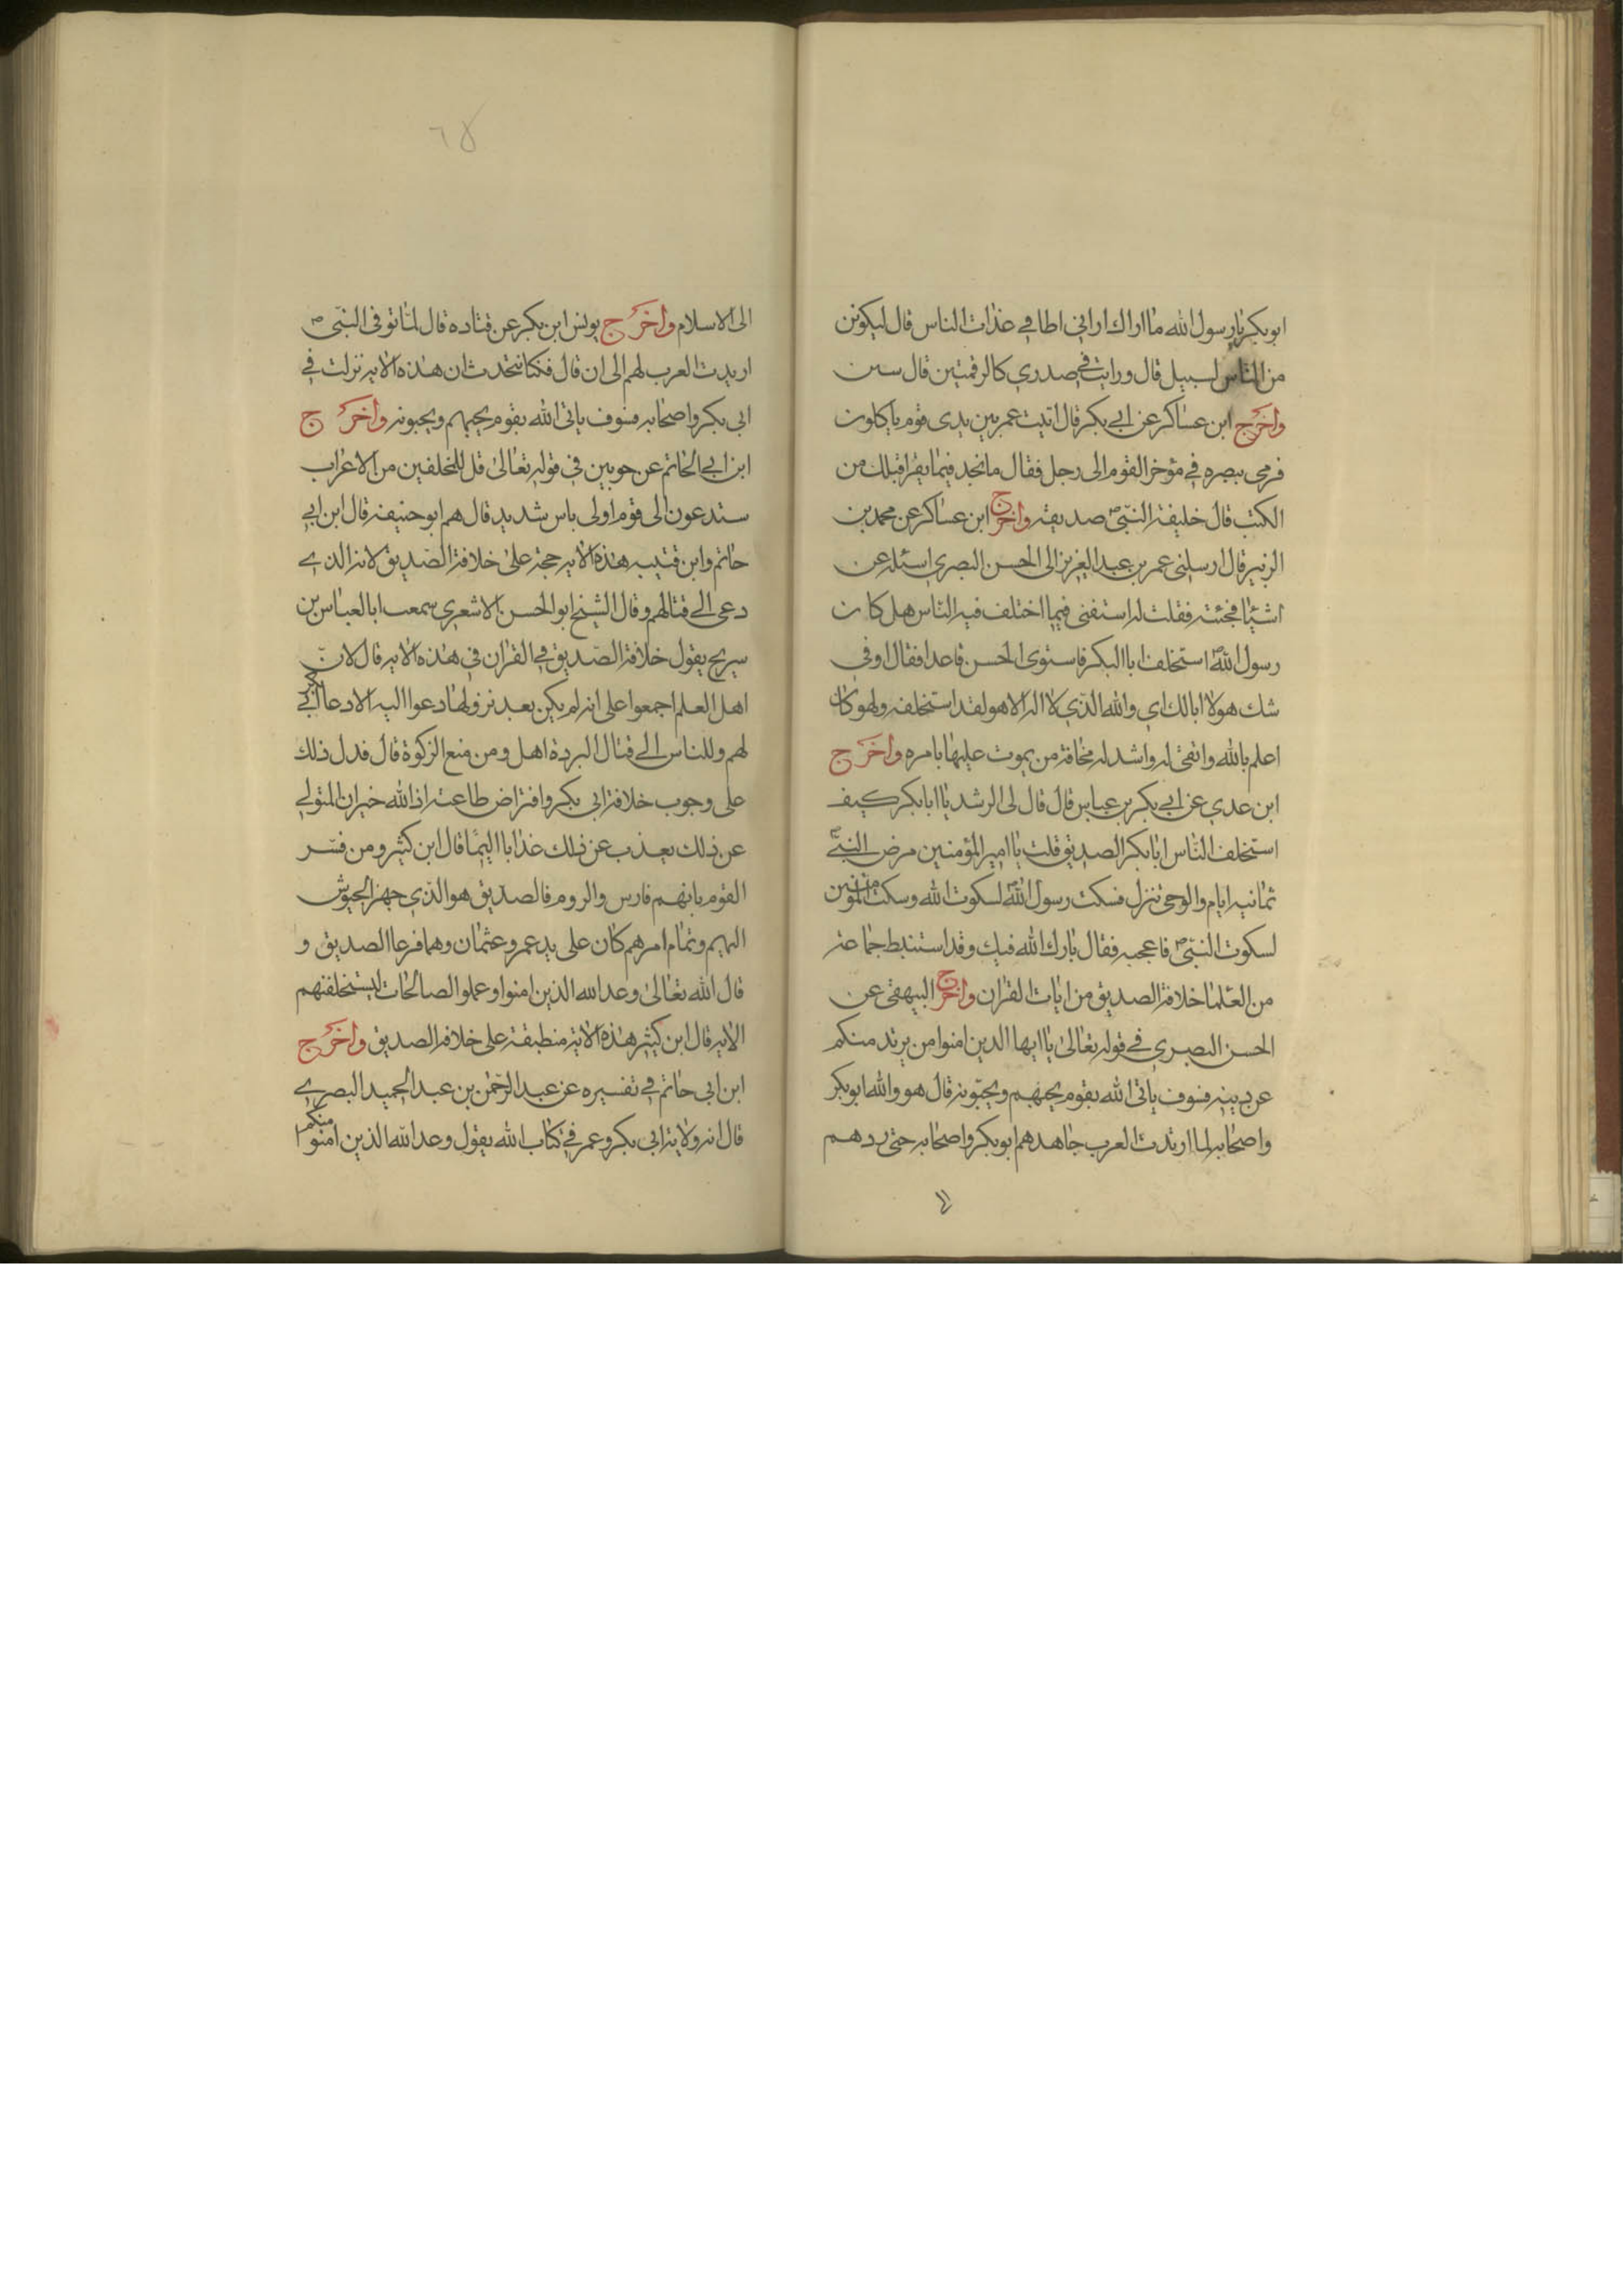 ابو بكر يا رسول الله ما اراك اراني اطا في عذرات الناس قال ليكونن
من الناس لسبيل قال ورايت في صدري كالرقمتين قال سنين
واخرج ابن عساكر عن ابي بكر قال اتيت عمر بين يدى قوم ياكلون
فرمى ببصره في مؤخر القوم الى رجل فقال ما تجد فيما يقرا قبلك من
الكتب قال خليفة النبي ص صديقه واخرج ابن عساكر عن محمد بن
الزبير قال ارسلنى عمر بن عبد العزيز الى الحسن البصري اسئله عن
اشيئا فجئته فقلت له استفنى فيما اختلف فيه الناس هل كان
رسول الله ص استخلف ابا البكر فاستوى الحسن قاعدا فقال اوفي
شك هولا ابالك اي والله الذي لا اله الا هو لقد استخلفه ولهو كان
اعلم بالله واتقى له واشد له مخافة من يموت عليها بامره واخرج
ابن عدي عن ابي بكر بن عياس قال قال لى الرشد يا ابا بكر كيف
استخلف الناس ابا بكر الصديق قلت يا امير المؤمنين مرض النبي ص
ثمانيه ايام والوحى تنزل فسكت رسول الله ص لسكوت الله وسكت المؤمنين
لسكوت النبي ص فاعجبه فقال بارك الله فيك وقد استنبط جماعة
من العلما خلافة الصديق من ايات القران واخرج البيهقى عن
الحسن البصري في قوله تعالى يا ايها الدين امنوا من يرتد منكم
عن دينه فسوف ياتى الله بقوم يحبهم ويحبونه قال هو والله ابو بكر
واصحابه لما ارتدت العرب جاهدهم ابو بكر واصحابه حتى ردهم
الى
الى الاسلام واخرج يونس ابن بكر عن قتاده قال لما توفى النبي ص
اريدت العرب لهم الى ان قال فكنا نتحدث ان هذه الايه نزلت في
ابى بكر واصحابه فسوف ياتى الله بقوم يحبهم ويحبونه واخرج
ابن ابي الحاتم عن جويبن في قوله تعالى قل للمخلفين من الاعراب
ستدعون الى قوم اولى باس شديد قال هم ابو حنيفه قال ابن ابي
حاتم وابن قتيبه هذه الايه حجة على خلافة الصديق لانه الدي
دعى الى قتالهم وقال الشيخ ابو الحسن الاشعري سمعت ابا العباس بن
سريج يقول خلافة الصديق في القران في هذه الايه قال لان
اهل العلم اجمعوا على انه لم يكن بعد نزولها دعوا اليه الا دعا ابي بكر
لهم وللناس الى قتال البردة اهل ومن منع الزكوة قال فدل ذلك
على وجوب خلافة ابى بكر وافتراض طاعته اذ الله خبر ان المتولي
عن ذلك يعذب عن ذلك عذابا اليما قال ابن كثير ومن فسر
القوم بانهم فارس والروم فالصديق هو الذي جهز الجيوش
اليهم وتمام امرهم كان على يد عمر وعثمان وهما فرعا الصديق و
قال الله تعالى وعد الله الذين امنوا وعملوا الصالحات ليستخلفنهم
الايه قال ابن كثير هذه الاية منطبقة على خلافه الصديق واخرج
ابن ابى حاتم في تفسيره عن عبد الرحمن بن عبد الحميد البصري
قال انه ولاية ابى بكر وعمر في كتاب الله يقول وعد الله الذين امنوا منكم